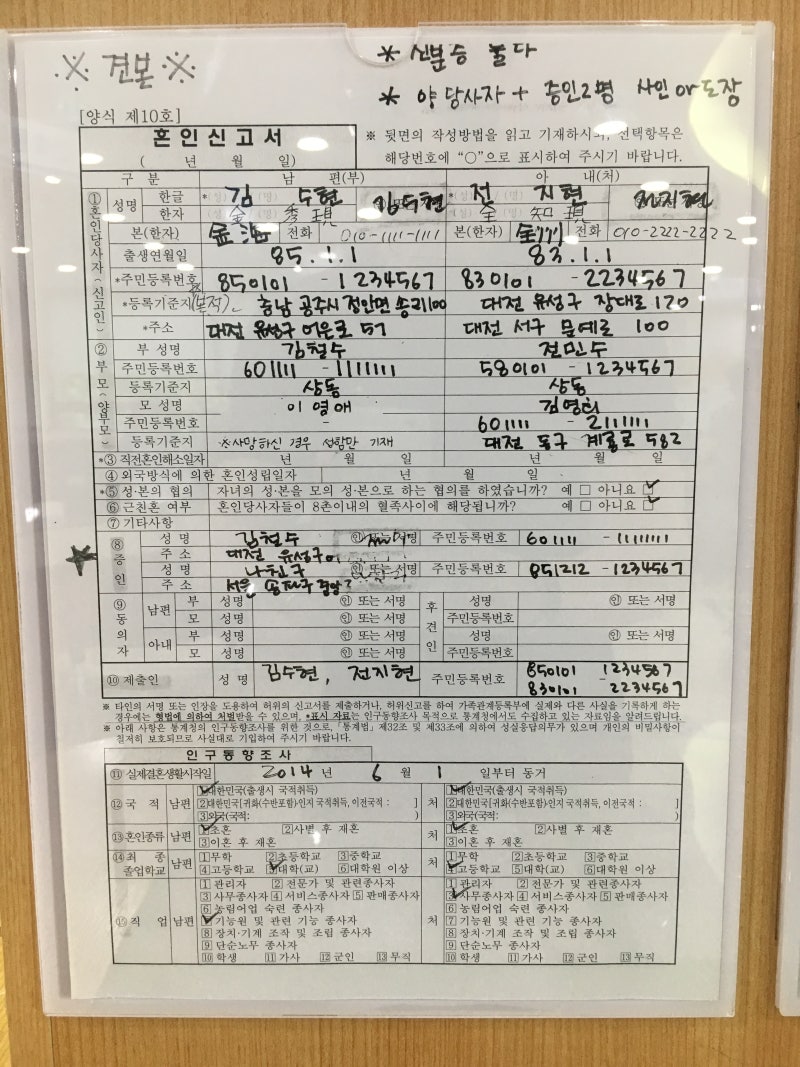 ※ 견본 ※
* 신분증 둘다
* 양 당사자 + 증인2명 사인 or 도장
[양식 제10호]
혼 인 신 고 서
( 년 월 일)
※ 뒷면의 작성방법을 읽고 기재하시되, 선택항목은
해당번호에 "○"으로 표시하여 주시기 바랍니다.
구 분 남 편(부) 아 내(처)
①혼인당사자(신고인)
성명 한글 *(성) 김 (명) 수현 김수현 *(성) 전 (명) 지현 전지현
한자 (성) 金 (명) 秀現 (성) 全 (명) 知現
본(한자) 金海 전화 010-1111-1111 본(한자) 전화 010-2222-2222
출생연월일 85.1.1 83.1.1
*주민등록번호 850101 - 1234567 830101 - 2234567
*등록기준지 (본적) 충남 공주시 정안면 송리100 대전 유성구 장대로 120
*주소 대전 유성구 어은로 57 대전 서구 문예로 100
②부모(양부모)
부 성명 김철수 전민수
주민등록번호 601111 - 1111111 580101 - 1234567
등록기준지 상동 상동
모 성명 이영애 김영희
주민등록번호 - 601111 - 2111111
등록기준지 ※사망하신 경우 성함만 기재 대전 동구 계룡로 582
*③ 직전혼인해소일자 년 월 일 년 월 일
④ 외국방식에 의한 혼인성립일자 년 월 일
*⑤ 성·본의 협의 자녀의 성·본을 모의 성·본으로 하는 협의를 하였습니까? 예 □ 아니요 ☑
⑥ 근친혼 여부 혼인당사자들이 8촌이내의 혈족사이에 해당됩니까? 예 □ 아니요 ☑
⑦ 기타사항
★ ⑧증인
성 명 김철수 ㊞ 또는 서명 주민등록번호 601111 - 1111111
주 소 대전 유성구
성 명 나친구 ㊞ 또는 서명 주민등록번호 851212 - 1234567
주 소 서울 송파구
⑨동의자
남편 부 성명 ㊞ 또는 서명 후견인 성명 ㊞ 또는 서명
모 성명 ㊞ 또는 서명 주민등록번호
아내 부 성명 ㊞ 또는 서명 성명 ㊞ 또는 서명
모 성명 ㊞ 또는 서명 주민등록번호
⑩ 제출인 성 명 김수현, 전지현 주민등록번호 850101 1234567
830101 - 2234567
※ 타인의 서명 또는 인장을 도용하여 허위의 신고서를 제출하거나, 허위신고를 하여 가족관계등록부에 실제와 다른 사실을 기록하게 하는
경우에는 형법에 의하여 처벌받을 수 있으며, *표시 자료는 인구동향조사 목적으로 통계청에서도 수집하고 있는 자료임을 알려드립니다.
※ 아래 사항은 통계청의 인구동향조사를 위한 것으로, 「통계법」 제32조 및 제33조에 의하여 성실응답의무가 있으며 개인의 비밀사항이
철저히 보호되므로 사실대로 기입하여 주시기 바랍니다.
인 구 동 향 조 사
⑪ 실제결혼생활시작일 2014 년 6 월 1 일부터 동거
⑫ 국 적 남편 ①대한민국(출생시 국적취득) 처 ①대한민국(출생시 국적취득)
②대한민국[귀화(수반포함)·인지 국적취득, 이전국적 : ] ②대한민국[귀화(수반포함)·인지 국적취득, 이전국적 : ]
③외국(국적: ) ③외국(국적: )
⑬혼인종류 남편 ①초혼 ②사별 후 재혼 처 ①초혼 ②사별 후 재혼
③이혼 후 재혼 ③이혼 후 재혼
⑭최 종 졸업학교 남편 ①무학 ②초등학교 ③중학교 처 ①무학 ②초등학교 ③중학교
④고등학교 ⑤대학(교) ⑥대학원 이상 ④고등학교 ⑤대학(교) ⑥대학원 이상
⑮직 업 남편 ①관리자 ②전문가 및 관련종사자 처 ①관리자 ②전문가 및 관련종사자
③사무종사자 ④서비스종사자 ⑤판매종사자 ③사무종사자 ④서비스종사자 ⑤판매종사자
⑥농림어업 숙련 종사자 ⑥농림어업 숙련 종사자
⑦기능원 및 관련 기능 종사자 ⑦기능원 및 관련 기능 종사자
⑧장치·기계 조작 및 조립 종사자 ⑧장치·기계 조작 및 조립 종사자
⑨단순노무 종사자 ⑨단순노무 종사자
⑩학생 ⑪가사 ⑫군인 ⑬무직 ⑩학생 ⑪가사 ⑫군인 ⑬무직